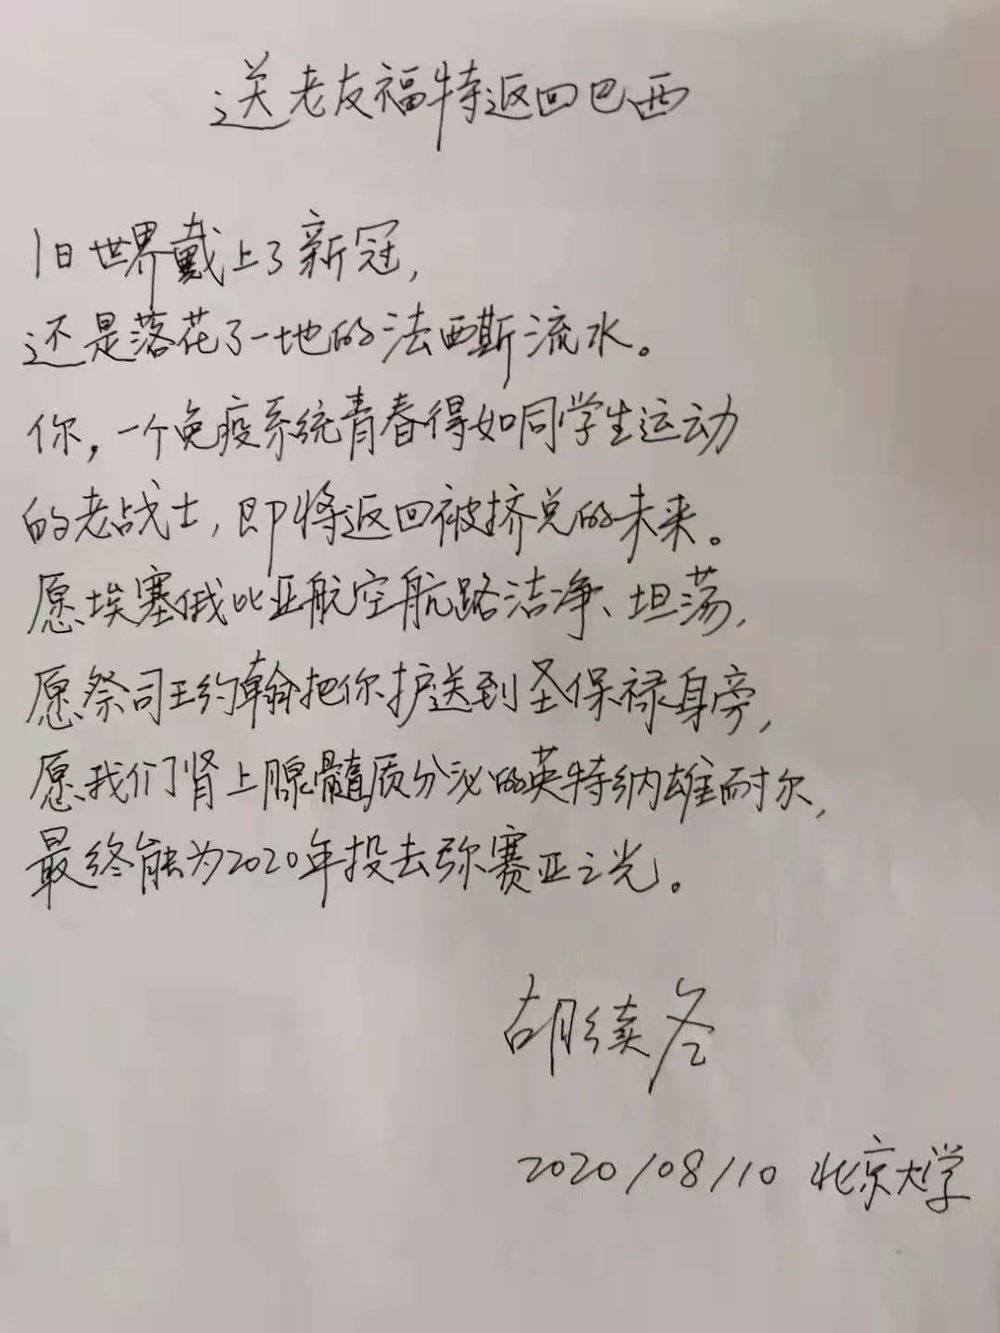 送老友福特返回巴西
旧世界戴上了新冠,
还是落花了一地的法西斯流水。
你,一个免疫系统青春得如同学生运动
的老战士,即将返回被挤兑的未来。
愿埃塞俄比亚航空航路洁净、坦荡,
愿祭司王约翰把你护送到圣保禄身旁,
愿我们肾上腺髓质分泌的英特纳雄耐尔,
最终能为2020年投去弥赛亚之光。
胡续冬
2020/08/10 北京大学